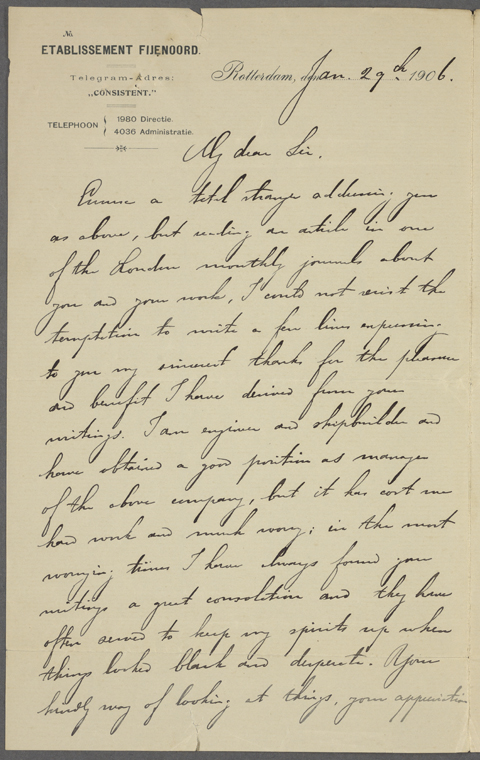 No.
ETABLISSEMENT FIJENOORD.
Telegram-Adres:
„CONSISTENT."
TELEPHOON { 1980 Directie.
4036 Administratie.
Rotterdam, den Jan. 29th 1906.
My dear Sir,
Excuse a total stranger addressing you
as above, but reading an article in one
of the London monthly journals about
you and your work, I could not resist the
temptation to write a few lines expressing
to you my sincerest thanks for the pleasure
and benefit I have derived from your
writings. I am engineer and shipbuilder and
have obtained a good position as manager
of the above company, but it has cost me
hard work and much worry; in the most
worrying times I have always found your
writings a great consolation and they have
often served to keep my spirits up when
things looked blank and desperate. Your
kindly way of looking at things, your appreciation